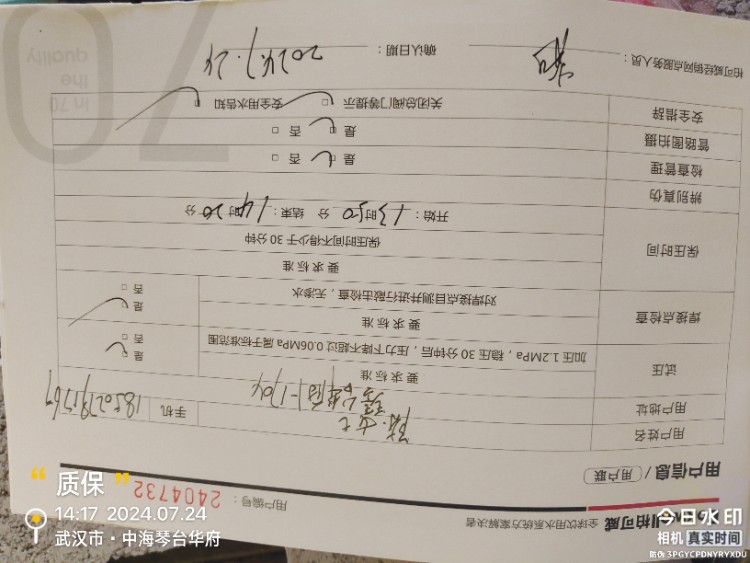 全球饮用水系统方案解决者
用户信息 / 用户联
用户编号： 2404732
用户姓名
手机 18502791769
用户地址 1-1704
试压
要求标准
加压 1.2MPa，稳压 30 分钟后，压力下降不超过 0.06MPa 属于标准范围
是
否
焊接点检查
要求标准
对焊接点目测并进行敲击检查，无渗水
是
否
保压时间
要求标准
保压时间不得少于 30 分钟
开始： 13 时 50 分 结束： 14 时 20 分
辨别真伪
检查管理 是 否
管路图拍摄 是 否
安全措辞 关闭总阀门等提示 安全用水告知
柏可威经销网点服务人员：
确认日期： 2024.7.24
in 70
the
quality
70
质保
14:17 2024.07.24
武汉市·中海琴台华府
今日水印
相机 真实时间
防伪 3PGYCPDNYRYXDU